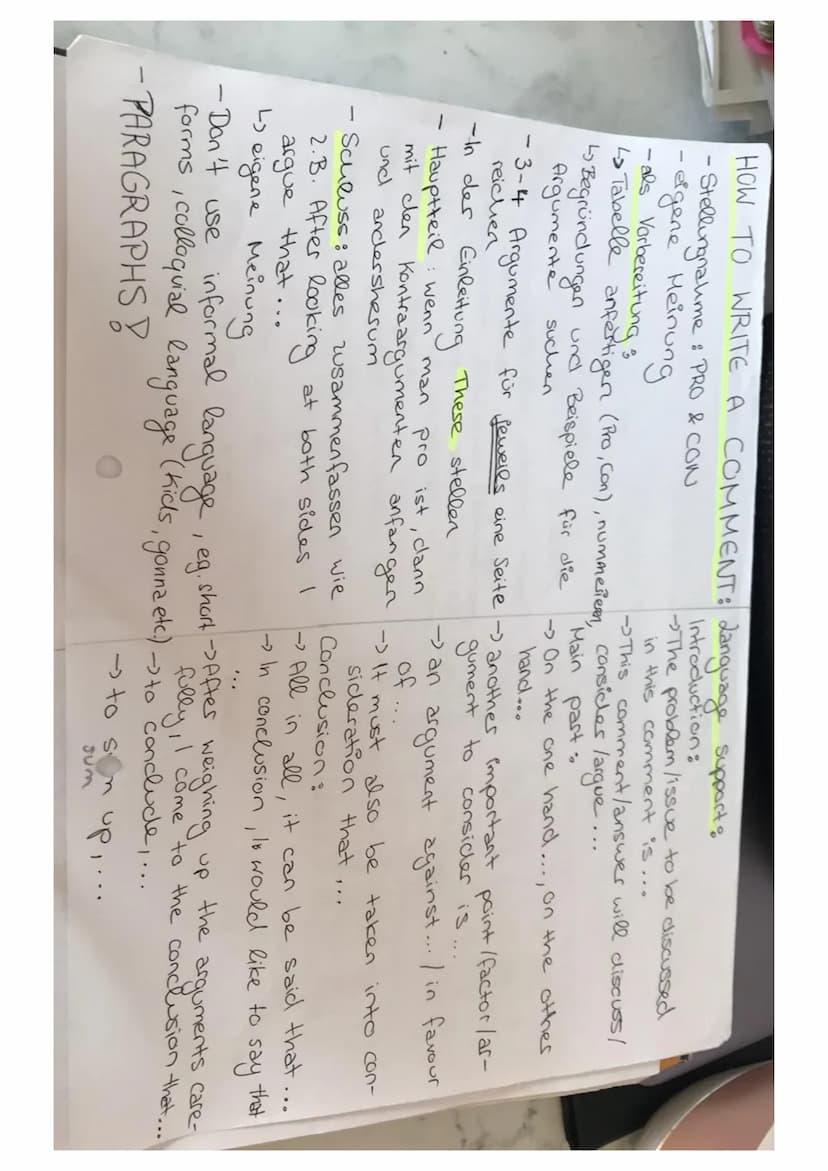 HOW TO WRITE A COMMENT:
- Stellungnahme: PRO & CON
- eigene Meinung
- als Vorbereitung:
↳ Tabelle anfertigen (Pro, Con), nummerieren,
↳ Begründungen und Beispiele für die
Argumente suchen
- 3-4 Argumente für jeweils eine Seite
reichen
- In der Einleitung These stellen
- Hauptteil: wenn man pro ist, dann
mit den Kontraargumenten anfangen
und andersherum
- Schluss: alles zusammenfassen wie
z.B. After looking at both sides I
argue that...
↳ eigene Meinung
- Don't use informal language, eg. short
forms, colloquial language (kids, gonna etc)
- PARAGRAPHS!
Language support:
Introduction:
→ The problem/issue to be discussed
in this comment is...
→ This comment/answer will discuss/
consider/argue...
Main part:
→ On the one hand..., on the other
hand...
→ another important point/factor/ar-
gument to consider is...
→ an argument against.../in favour
of...
→ It must also be taken into con-
sideration that...
Conclusion:
→ All in all, it can be said that...
→ In conclusion, I would like to say that
...
→ After weighing up the arguments care-
fully, I come to the conclusion that...
→ to conclude,...
→ to sum up,....
sum